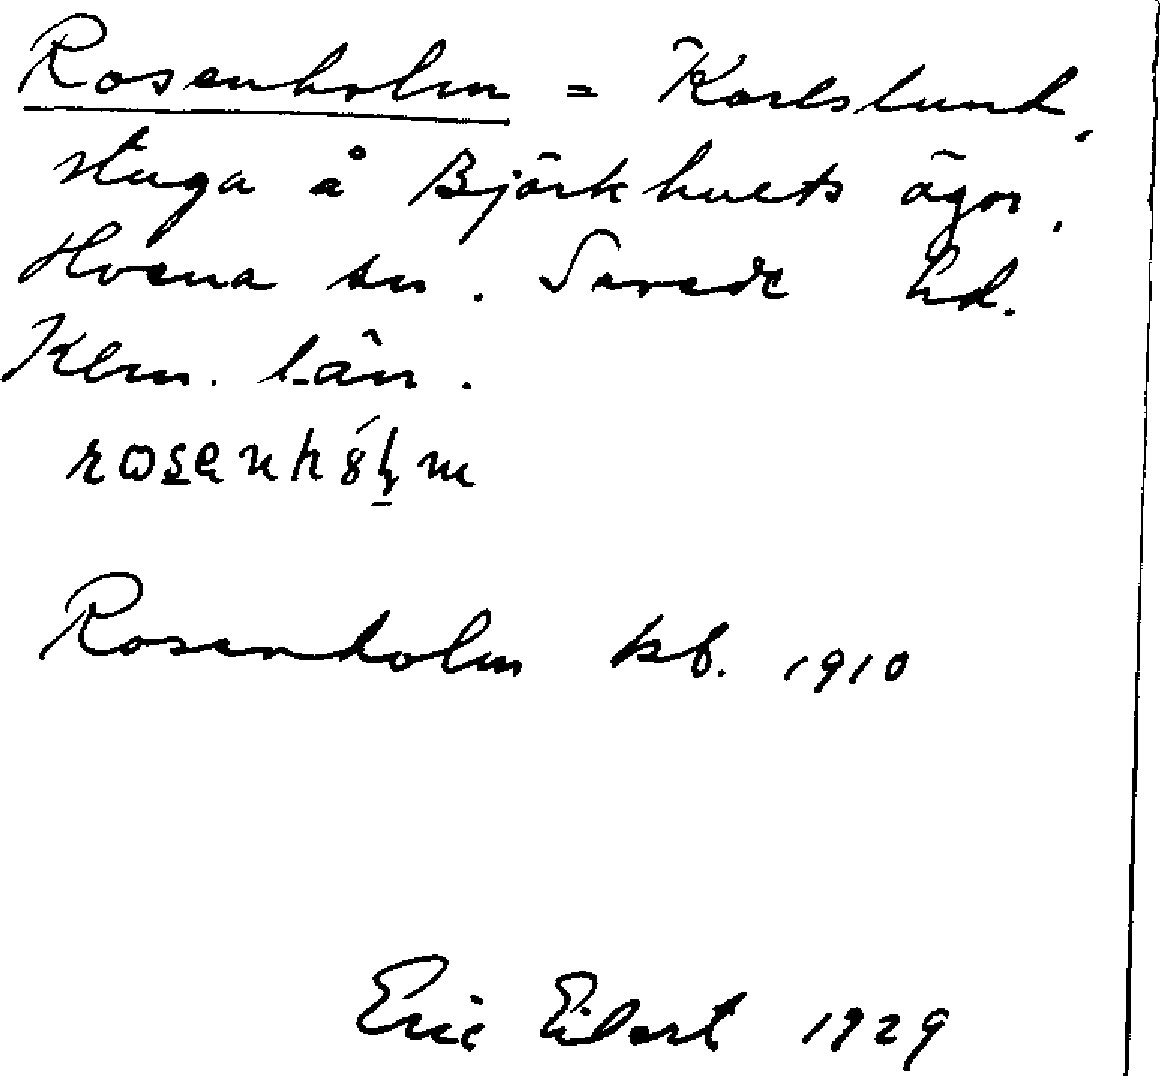 Rosenholm = Karlslund,
stuga å Björkhults ägor,
Hvena sn. Sevede hd.
Klm. län.
Rosenholm kb. 1910
Eric Eibert 1929